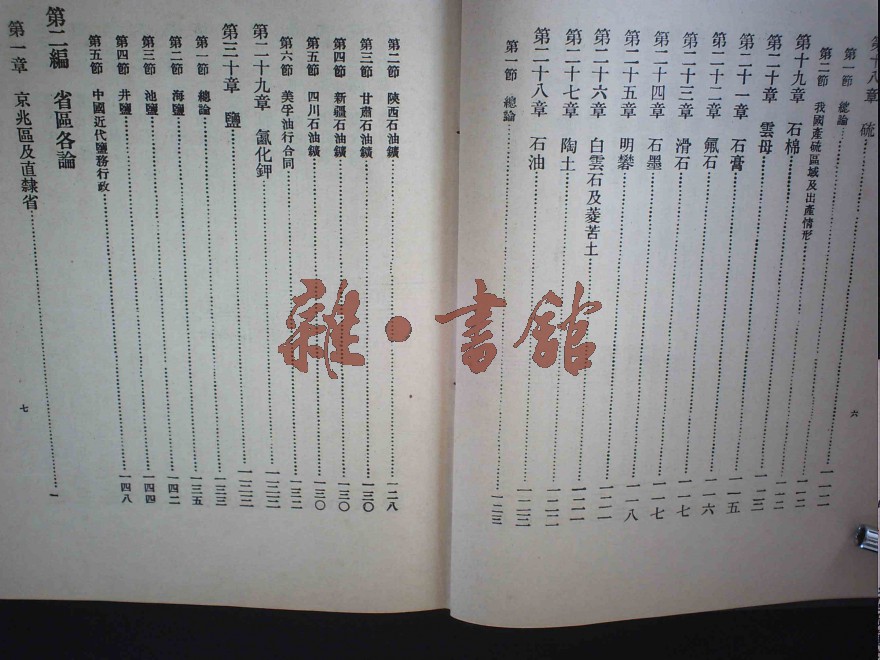 第十八章 硫……一一一
第一節 總論……一一二
第二節 我國產硫區域及出產情形……一一二
第十九章 石棉……一一三
第二十章 雲母……一一五
第二十一章 石膏……一一六
第二十二章 氟石……一一七
第二十三章 滑石……一一七
第二十四章 石墨……一一八
第二十五章 明礬……一二一
第二十六章 白雲石及菱苦土……一二一
第二十七章 陶土……一二二
第二十八章 石油……一二三
第一節 總論……一二三
六
第二節 陝西石油鑛……一二八
第三節 甘肅石油鑛……一三〇
第四節 新疆石油鑛……一三〇
第五節 四川石油鑛……一三〇
第六節 美孚油行合同……一三二
第二十九章 氯化鉀……一三二
第三十章 鹽……一三三
第一節 總論……一三三
第二節 海鹽……一三五
第三節 池鹽……一四二
第四節 井鹽……一四四
第五節 中國近代鹽務行政……一四八
第二編 省區各論
第一章 京兆區及直隸省……一
七
雜·書館